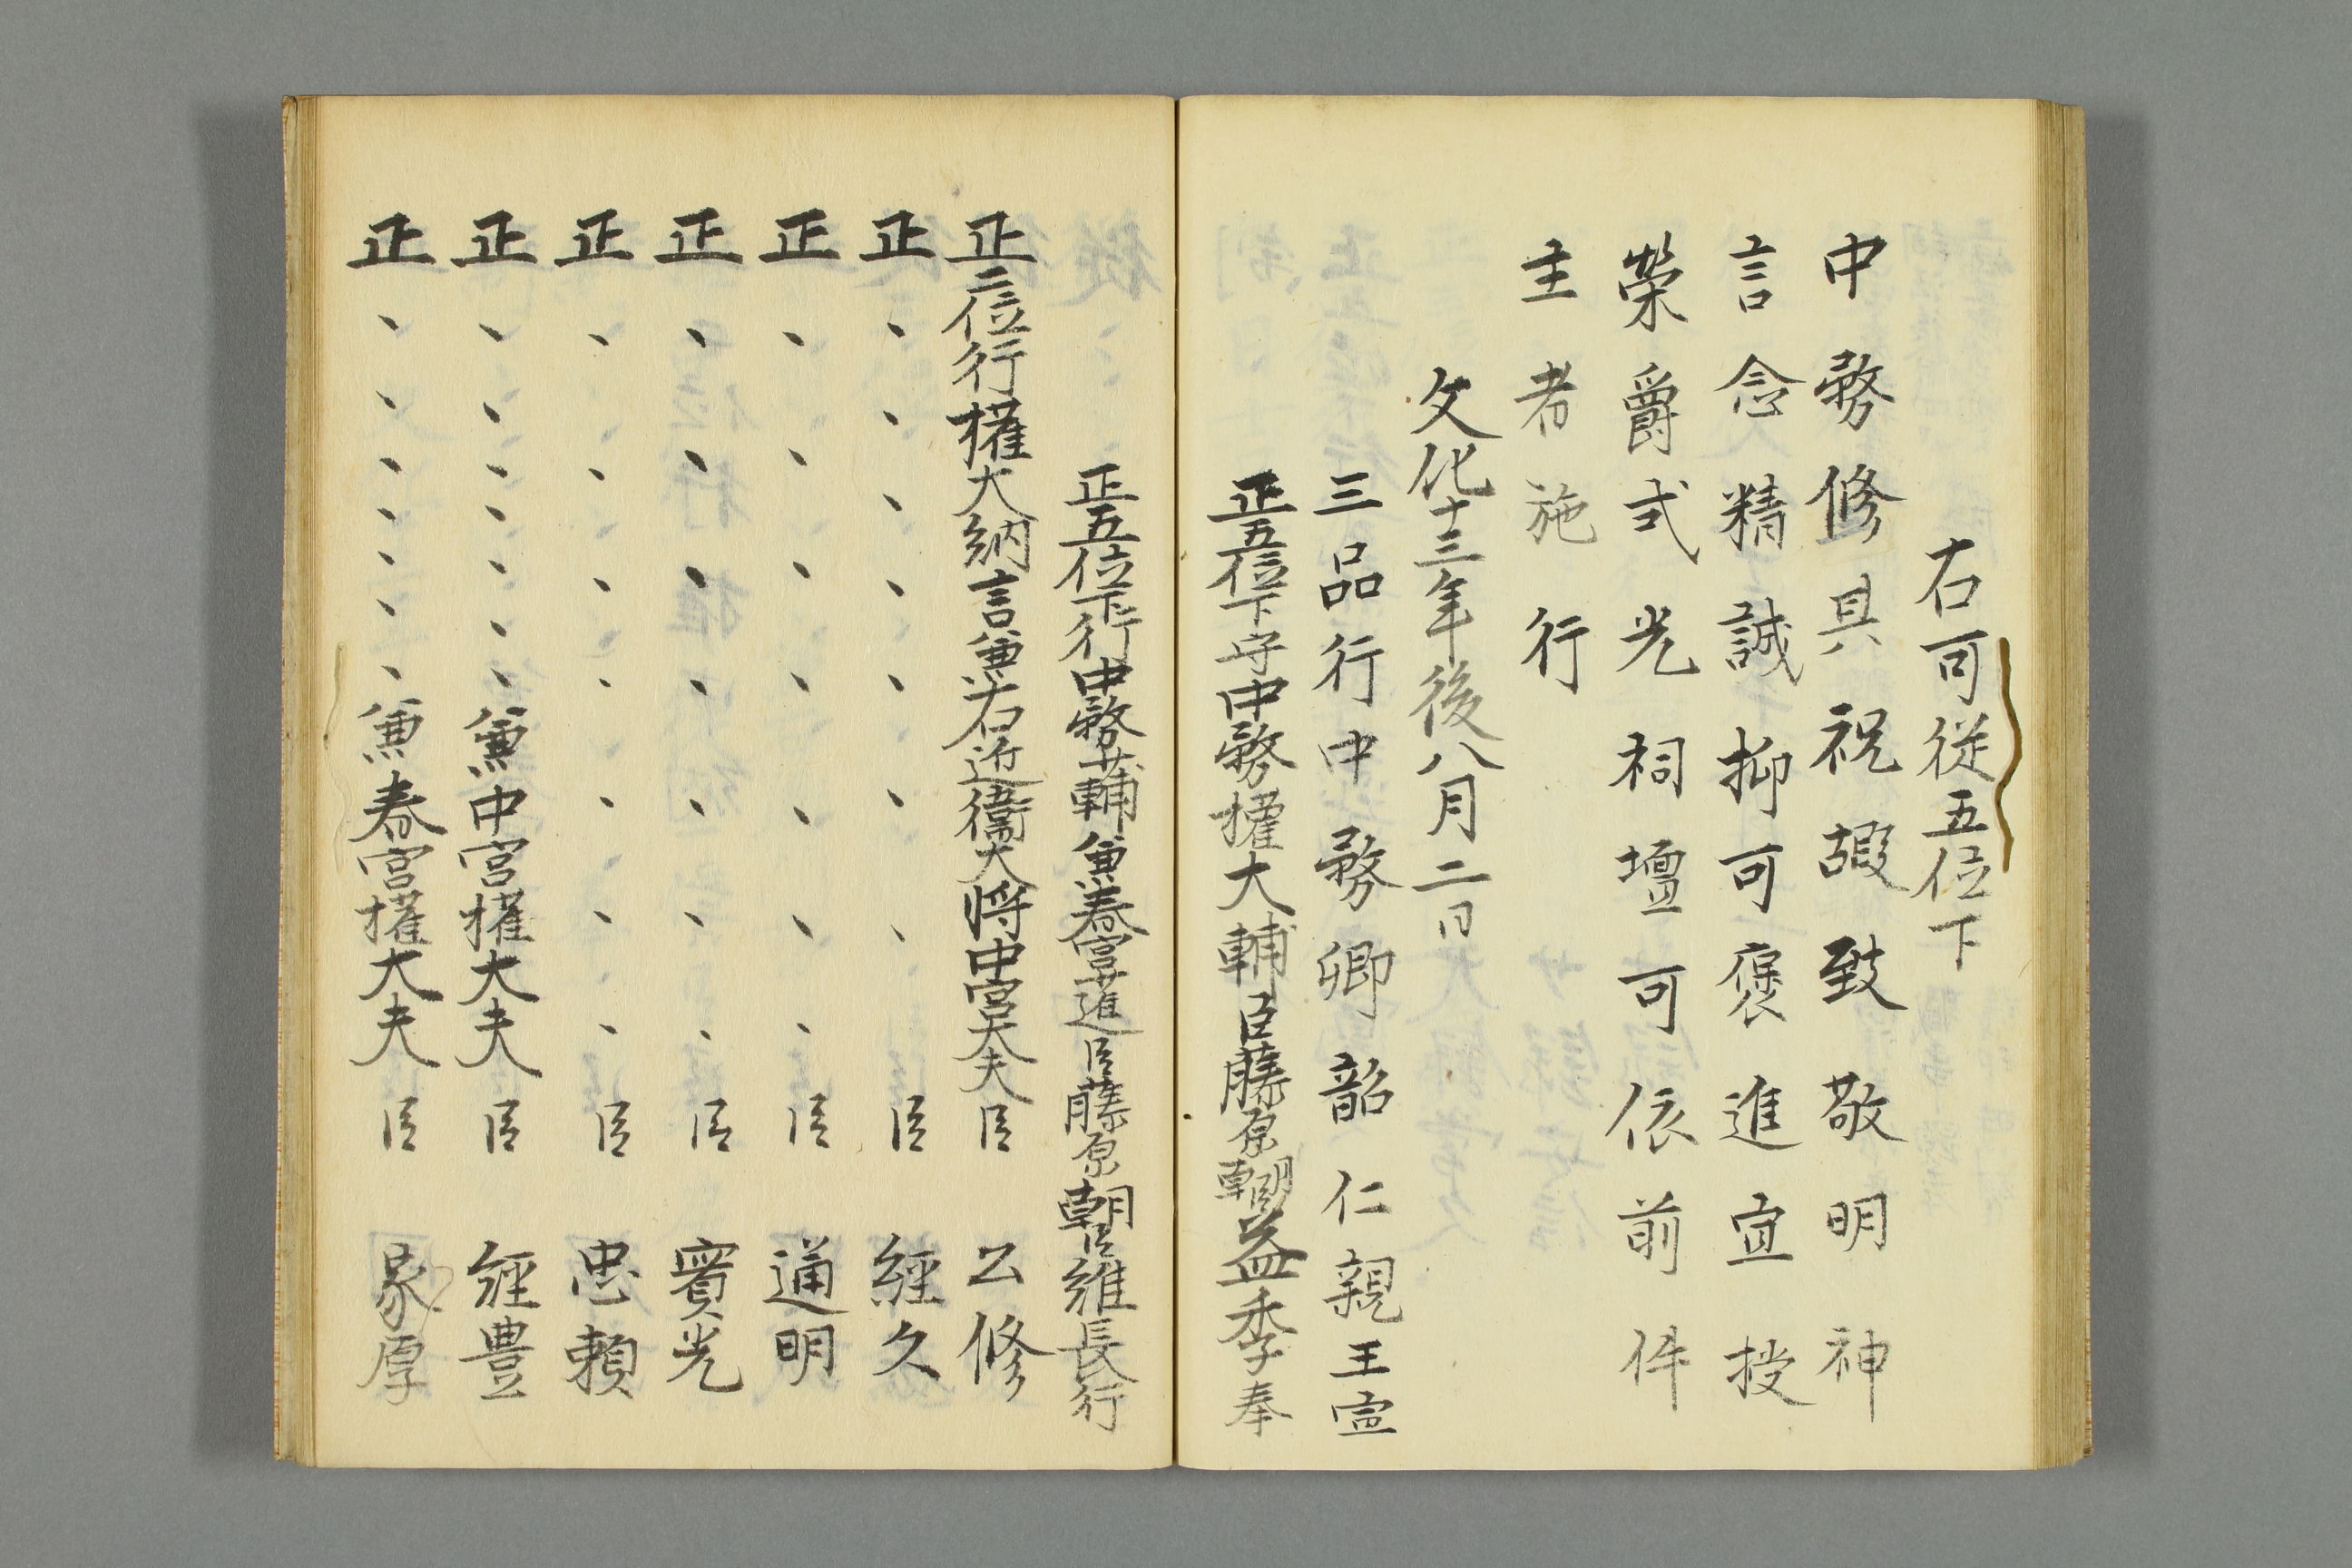 右可従五位下
中務修具祝嘏致敬明神
言念精誠抑可褒進宜授
榮爵式光祠壇可依前件
主者施行
文化十三年後八月二日
三品行中務卿韶仁親王宣
正五位下守中務權大輔臣藤原朝臣益季奉
正五位下行中務少輔兼春宮少進臣藤原朝臣維長行
正二位行權大納言兼右近衛大将中宮大夫臣 公修
正、、、、、、、臣 經久
正、、、、、、、臣 通明
正、、、、、、、臣 實光
正、、、、、、、臣 忠頼
正、、、、、、、兼中宮權大夫臣 經豊
正、、、、、、、兼春宮權大夫臣 家厚